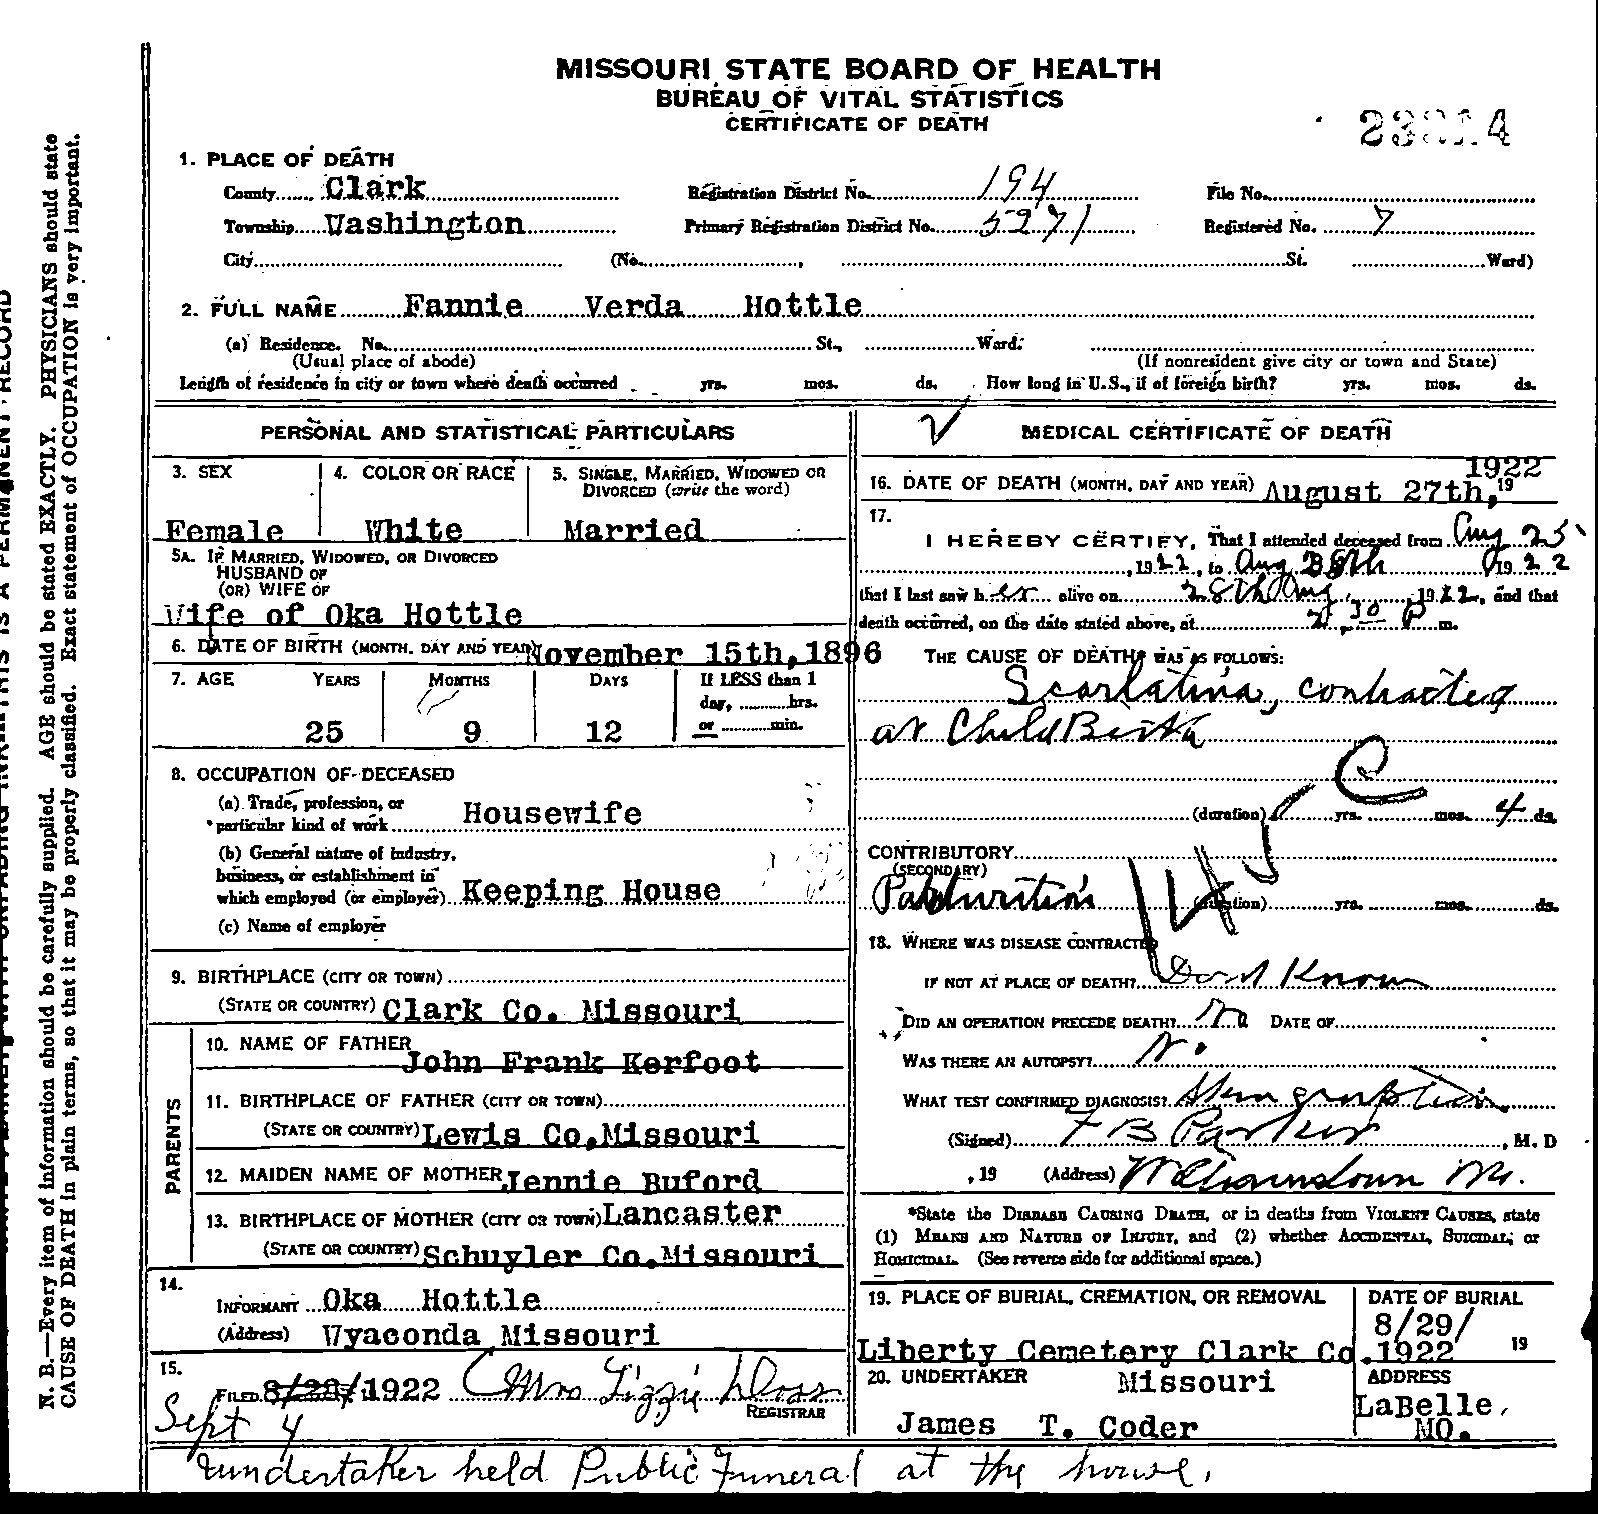 MISSOURI STATE BOARD OF HEALTH
BUREAU OF VITAL STATISTICS
CERTIFICATE OF DEATH
1. PLACE OF DEATH
County Clark Registration District No. 194 File No.
Township Washington Primary Registration District No. 5271 Registered No. 7
City (No. , St. Ward)
2. FULL NAME Fannie Verda Hottle
(a) Residence. No. St., Ward.
(Usual place of abode) (If nonresident give city or town and State)
Length of residence in city or town where death occurred yrs. mos. ds. How long in U.S., if of foreign birth? yrs. mos. ds.
PERSONAL AND STATISTICAL PARTICULARS
3. SEX 4. COLOR OR RACE 5. SINGLE, MARRIED, WIDOWED OR
DIVORCED (write the word)
Female White Married
5A. IF MARRIED, WIDOWED, OR DIVORCED
HUSBAND OF
(OR) WIFE OF
Wife of Oka Hottle
6. DATE OF BIRTH (MONTH, DAY AND YEAR) November 15th, 1896
7. AGE YEARS MONTHS DAYS If LESS than 1
day, hrs.
25 9 12 or min.
8. OCCUPATION OF DECEASED
(a) Trade, profession, or
particular kind of work Housewife
(b) General nature of industry,
business, or establishment in
which employed (or employer) Keeping House
(c) Name of employer
9. BIRTHPLACE (CITY OR TOWN)
(STATE OR COUNTRY) Clark Co. Missouri
PARENTS
10. NAME OF FATHER John Frank Kerfoot
11. BIRTHPLACE OF FATHER (CITY OR TOWN)
(STATE OR COUNTRY) Lewis Co, Missouri
12. MAIDEN NAME OF MOTHER Jennie Buford
13. BIRTHPLACE OF MOTHER (CITY OR TOWN) Lancaster
(STATE OR COUNTRY) Schuyler Co. Missouri
14.
INFORMANT Oka Hottle
(Address) Wyaconda Missouri
15.
FILED 8/28/ 1922 Mrs Lizzie Doss
REGISTRAR
Sept 4
MEDICAL CERTIFICATE OF DEATH
1922
16. DATE OF DEATH (MONTH, DAY AND YEAR) August 27th, 19
17.
I HEREBY CERTIFY, That I attended deceased from Aug 25
, 1922, to Aug 28th 1922
that I last saw her alive on 28th Aug, 1922, and that
death occurred, on the date stated above, at 2.30 P m.
THE CAUSE OF DEATH* WAS AS FOLLOWS:
Scarlatina, contracted
at ChildBirth
C
(duration) yrs. mos. 4 ds.
CONTRIBUTORY
(SECONDARY)
(duration) yrs. mos. ds.
18. WHERE WAS DISEASE CONTRACTED
IF NOT AT PLACE OF DEATH? Dont Know
DID AN OPERATION PRECEDE DEATH? No DATE OF
WAS THERE AN AUTOPSY? No
WHAT TEST CONFIRMED DIAGNOSIS?
(Signed) F B Parker , M. D
, 19 (Address) Williamstown Mo.
*State the DISEASE CAUSING DEATH, or in deaths from VIOLENT CAUSES, state
(1) MEANS AND NATURE OF INJURY, and (2) whether ACCIDENTAL, SUICIDAL, or
HOMICIDAL. (See reverse side for additional space.)
19. PLACE OF BURIAL, CREMATION, OR REMOVAL DATE OF BURIAL
8/29/
Liberty Cemetery Clark Co. 1922 19
20. UNDERTAKER Missouri ADDRESS
James T. Coder LaBelle, MO.
undertaker held Public Funeral at the house.
N. B.—Every item of information should be carefully supplied. AGE should be stated EXACTLY. PHYSICIANS should state
CAUSE OF DEATH in plain terms, so that it may be properly classified. Exact statement of OCCUPATION is very important.